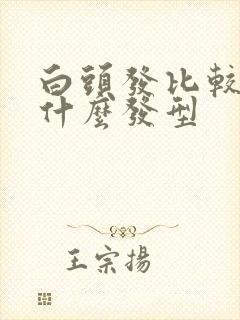 白頭發比較
什麼發型
王宗揚